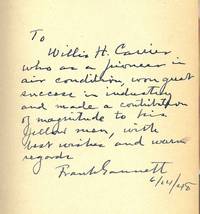 To
Willis H. Carrier
who as a pioneer in
air condition, won great
success in industry
and made a contribution
of magnitude to his
fellow men, with
best wishes and warm
regards
Frank Gannett
6/24/48